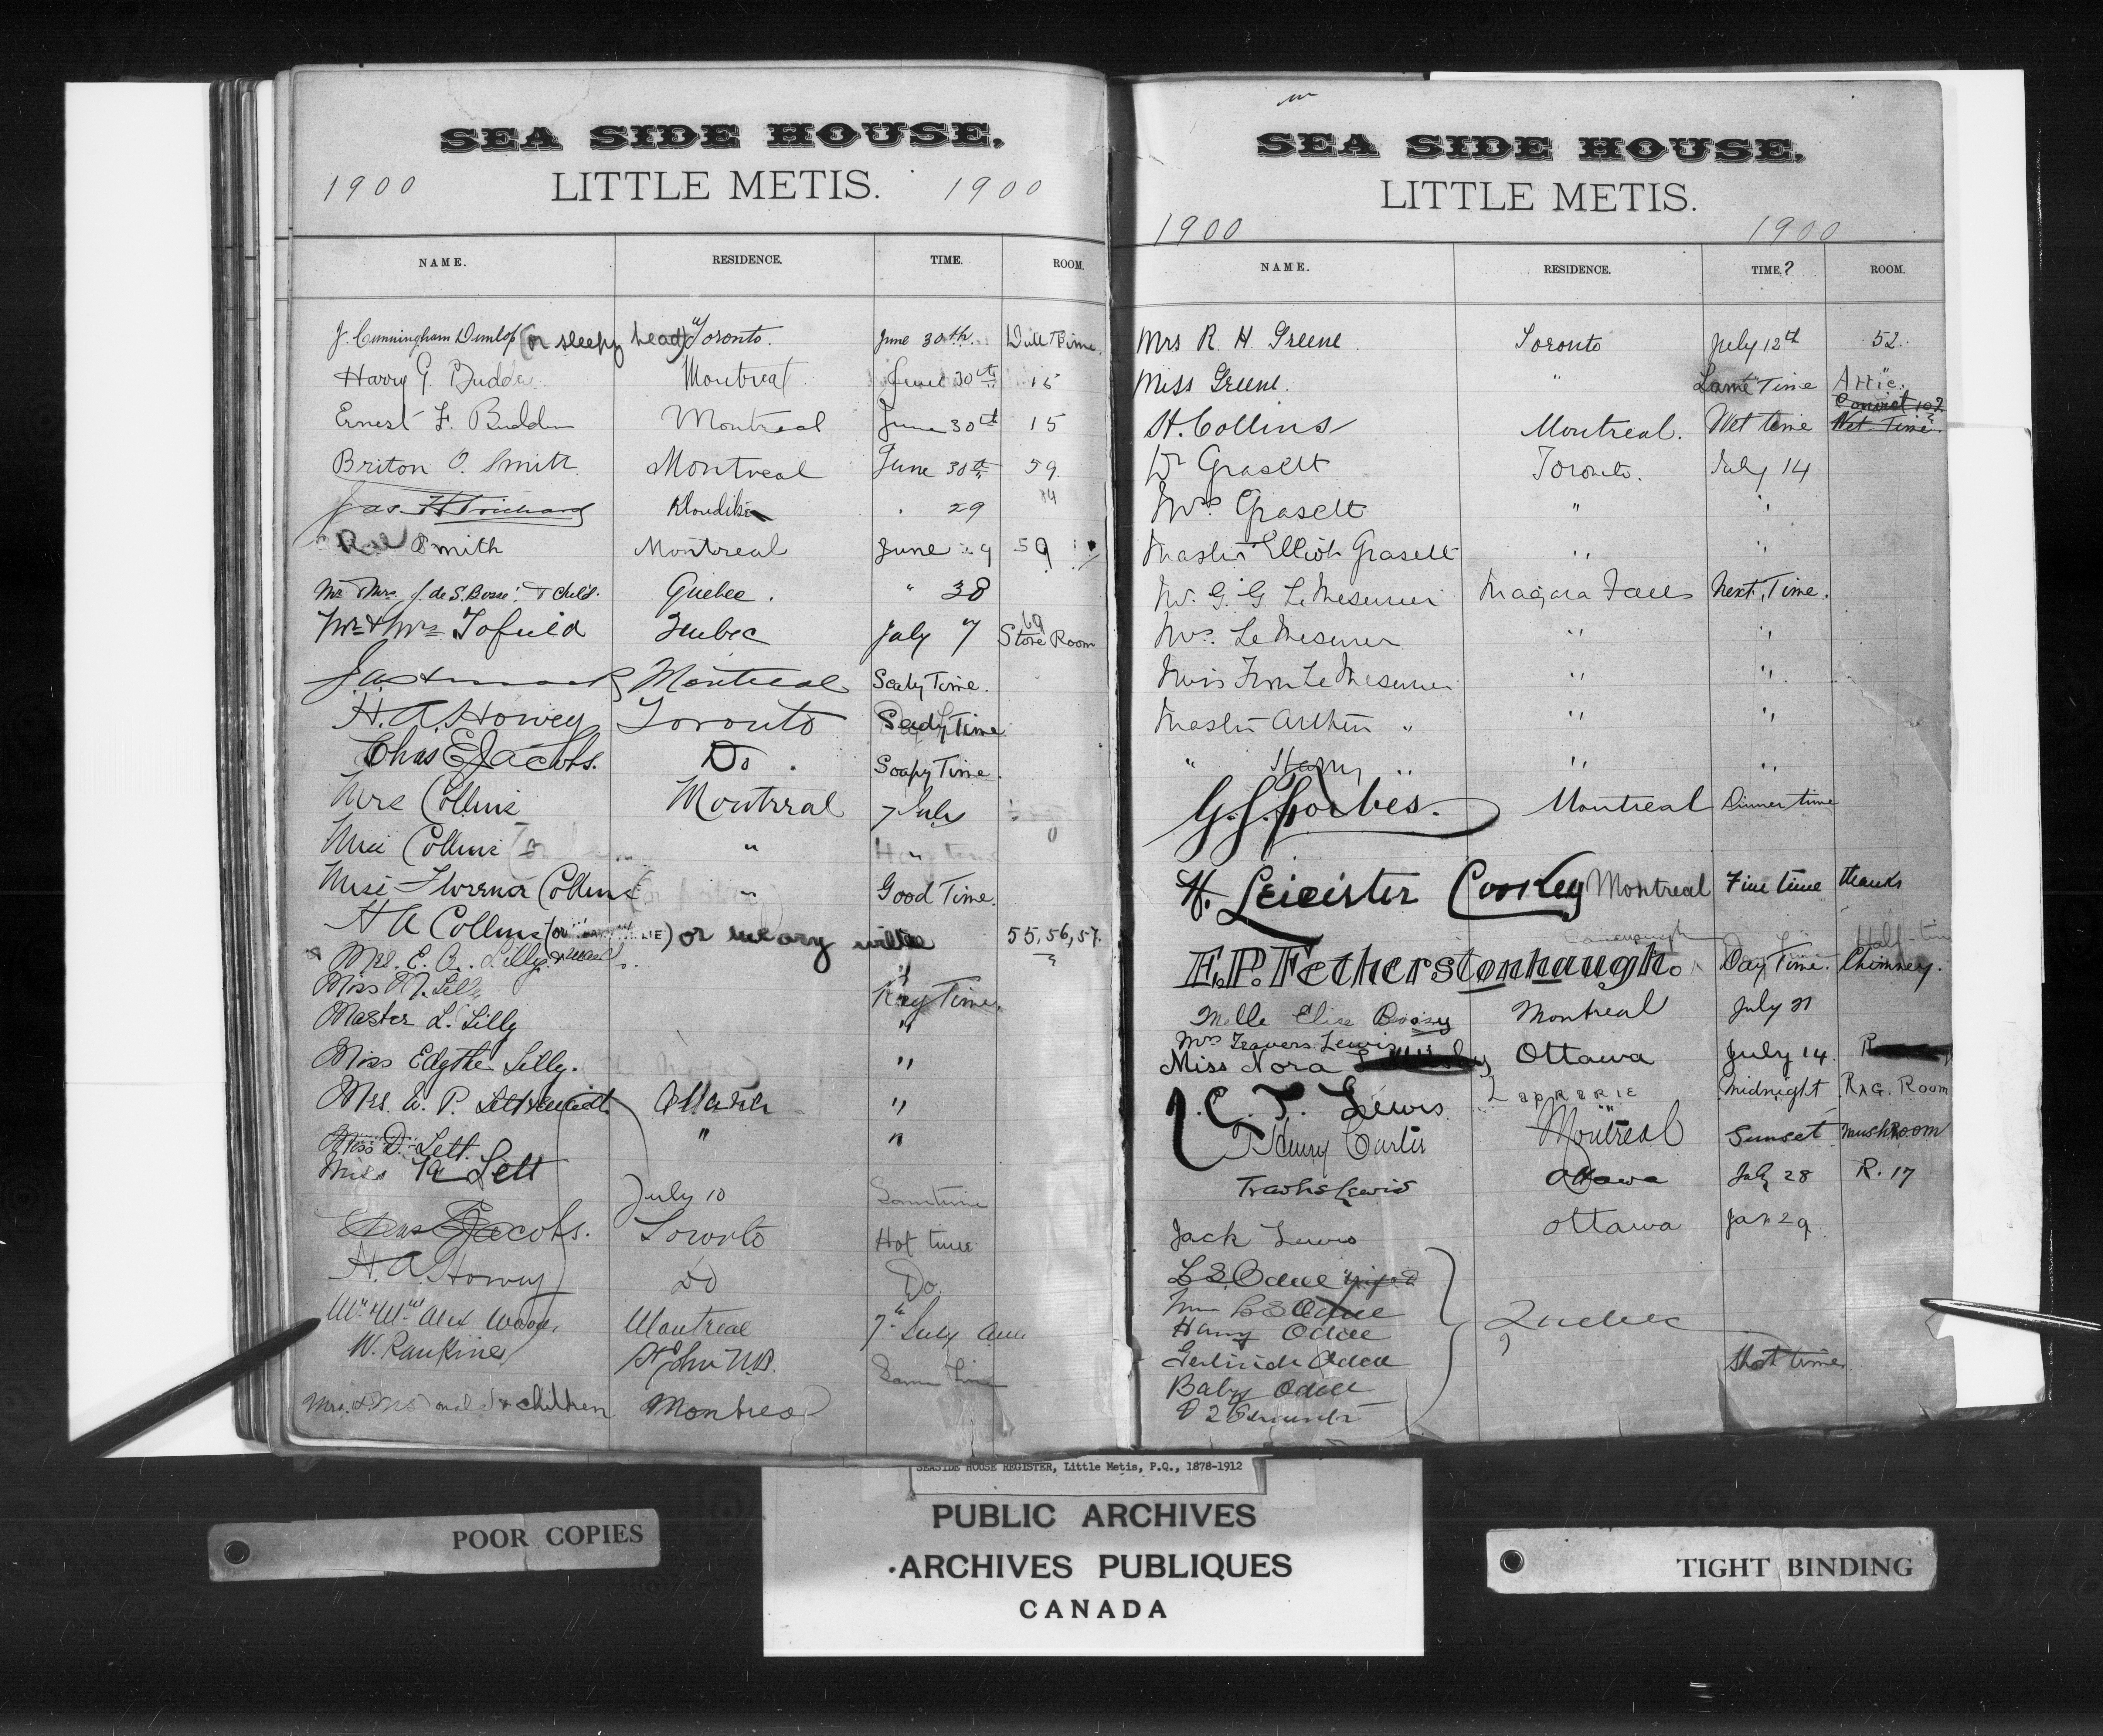 SEA SIDE HOUSE,
1900 LITTLE METIS. 1900
NAME. RESIDENCE. TIME. ROOM.
J. Cunningham Dunlop (or sleepy head) Toronto. June 30th
Harry G. Budden Montreal June 30th 15
Ernest F. Budden Montreal June 30th 15
Briton O. Smith Montreal June 30th 59
Klondike 29
Smith Montreal June 29 59
Mr & Mrs. J. de S. Bosse & Child. Quebec. " 38
Mr & Mrs Tofield Quebec July 7 Store Room
Montreal Time.
H. A. Howey Toronto Time
Chas E Jacobs. Do. Soapy Time.
Mrs Collins Montreal 7 July
Miss Collins "
Miss Florence Collins " Good Time.
H A Collins (or ) or weary willie 55, 56, 57.
Mrs. E. A. Lilly
Miss Lilly Time.
Master L. Lilly "
Miss Edythe Lilly. "
Mrs. W. P. Ottawa "
Miss D. Lett. " "
Miss Lett
July 10 Sometime
Chas E Jacobs. Toronto Hot time
H. A. Howey Do Do.
Mr & Mrs Alex Wood, Montreal 7th July
W. Rankine St John N.B. Same Time
& children Montreal
SEA SIDE HOUSE,
LITTLE METIS.
1900 1900
NAME. RESIDENCE. TIME.? ROOM.
Mrs R. H. Greene Toronto July 12th 52.
Miss Greene. " Time Attic.
H. Collins Montreal. Wet time Wet Time.
Dr Grasett Toronto. July 14
Mrs Grasett " "
Master Elliot Grasett " "
Mr. G. G. Le Mesurier Niagara Falls Next Time.
Mrs. Le Mesurier " "
Miss Le Mesurier " "
Master Arthur " " "
" Harry " " "
G. S. Forbes. Montreal Dinner time
H. Leicister Cooksey Montreal Fine time thanks
E. P. Fetherstonhaugh. Day Time. Chimney.
Melle Elise Boosey Montreal July 21
Mrs Travers Lewis
Miss Nora Ottawa July 14.
C. T. Lewis Midnight Rag. Room
T Henry Carter Montreal Sunset Mushroom
Lewis Ottawa July 28 R. 17
Jack Lewis Ottawa Jan 29
L S. Odell
Mrs L S Odell
Harry Odell Quebec
Gertrude Odell Short time
Baby Odell
& 2 Servants
SEASIDE HOUSE REGISTER, Little Metis, P.Q., 1878-1912
PUBLIC ARCHIVES
ARCHIVES PUBLIQUES
CANADA
POOR COPIES
TIGHT BINDING